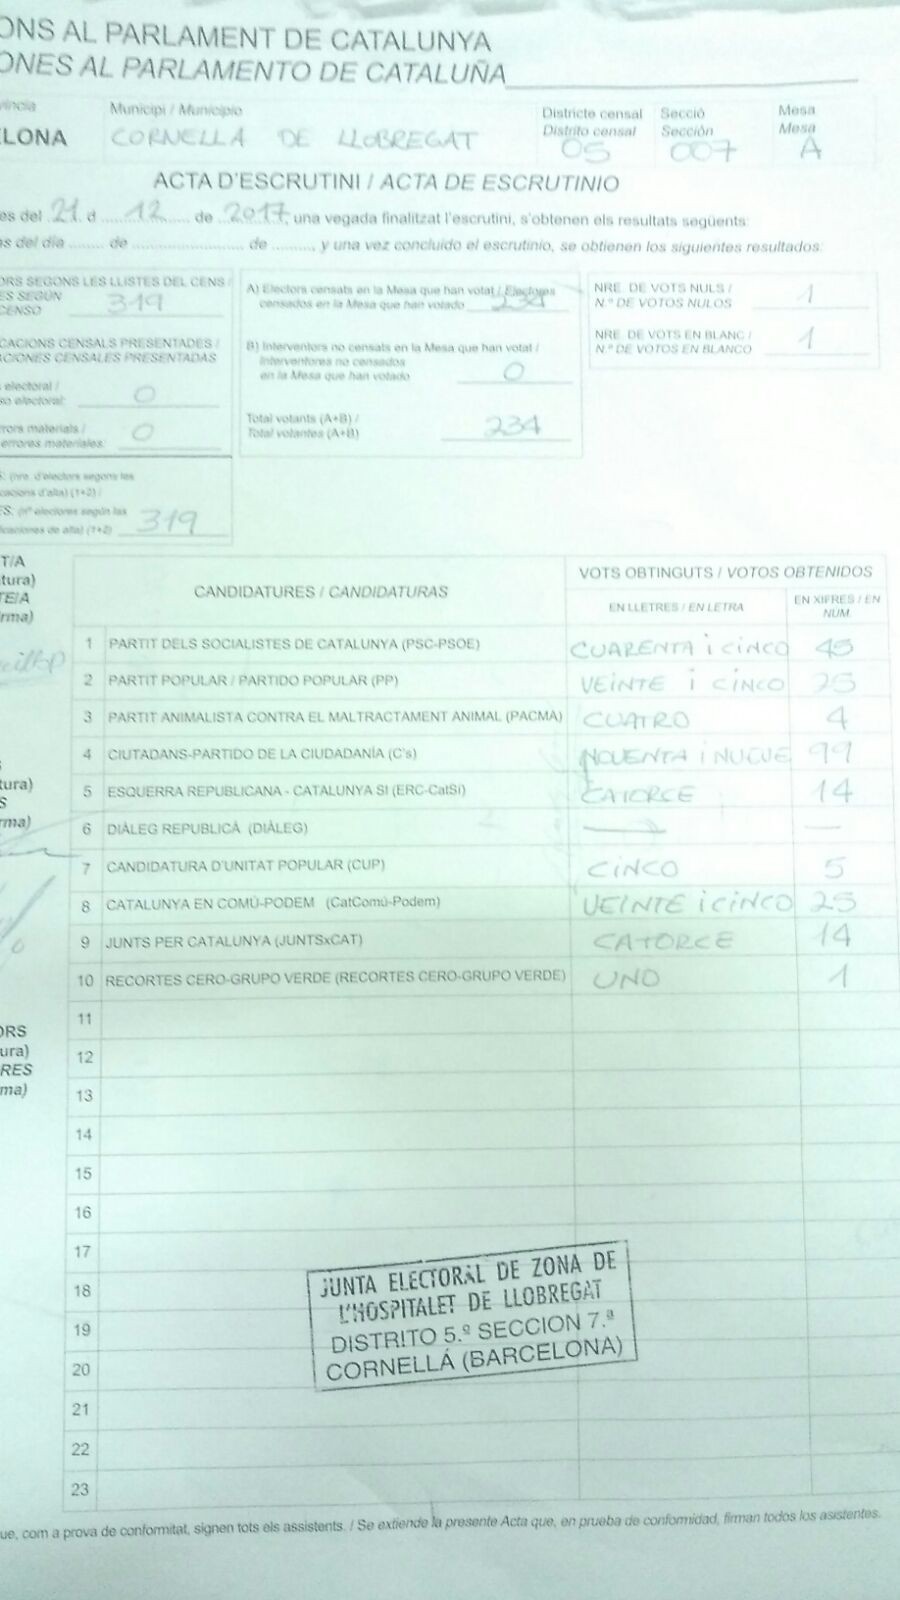 ONS AL PARLAMENT DE CATALUNYA
ONES AL PARLAMENTO DE CATALUÑA
víncia
Municipi / Municipio
Districte censal
Distrito censal
Secció
Sección
Mesa
Mesa
ELONA
CORNELLA DE LLOBREGAT
05
007
A
ACTA D'ESCRUTINI / ACTA DE ESCRUTINIO
es del 21 d 12 de 2017, una vegada finalitzat l'escrutini, s'obtenen els resultats següents:
as del día ........ de ........................ de ........, y una vez concluido el escrutinio, se obtienen los siguientes resultados:
ORS SEGONS LES LLISTES DEL CENS /
ES SEGÚN
CENSO
319
CACIONS CENSALS PRESENTADES /
ACIONES CENSALES PRESENTADAS
electoral /
so electoral: 0
rrors materials /
errores materiales: 0
S: (nre. d'electors segons les
cacions d'alta) (1+2) /
ES: (nº electores según las
ficaciones de alta) (1+2) 319
A) Electors censats en la Mesa que han votat / Electores
censados en la Mesa que han votado 234
B) Interventors no censats en la Mesa que han votat /
Interventores no censados
en la Mesa que han votado 0
Total votants (A+B) /
Total votantes (A+B) 234
NRE. DE VOTS NULS /
N.º DE VOTOS NULOS 1
NRE. DE VOTS EN BLANC /
N.º DE VOTOS EN BLANCO 1
T/A
tura)
TE/A
irma)
tura)
S
rma)
ORS
ura)
RES
ma)
CANDIDATURES / CANDIDATURAS
VOTS OBTINGUTS / VOTOS OBTENIDOS
EN LLETRES / EN LETRA
EN XIFRES / EN NUM.
1 PARTIT DELS SOCIALISTES DE CATALUNYA (PSC-PSOE) CUARENTA i CINCO 45
2 PARTIT POPULAR / PARTIDO POPULAR (PP) VEINTE i CINCO 25
3 PARTIT ANIMALISTA CONTRA EL MALTRACTAMENT ANIMAL (PACMA) CUATRO 4
4 CIUTADANS-PARTIDO DE LA CIUDADANÍA (C's) NOVENTA i NUEVE 99
5 ESQUERRA REPUBLICANA - CATALUNYA SI (ERC-CatSí) CATORCE 14
6 DIÀLEG REPUBLICÀ (DIÀLEG) — —
7 CANDIDATURA D'UNITAT POPULAR (CUP) CINCO 5
8 CATALUNYA EN COMÚ-PODEM (CatComú-Podem) VEINTE i CINCO 25
9 JUNTS PER CATALUNYA (JUNTSxCAT) CATORCE 14
10 RECORTES CERO-GRUPO VERDE (RECORTES CERO-GRUPO VERDE) UNO 1
11
12
13
14
15
16
17
18
19
20
21
22
23
JUNTA ELECTORAL DE ZONA DE
L'HOSPITALET DE LLOBREGAT
DISTRITO 5.º SECCION 7.ª
CORNELLÁ (BARCELONA)
que, com a prova de conformitat, signen tots els assistents. / Se extiende la presente Acta que, en prueba de conformidad, firman todos los asistentes.